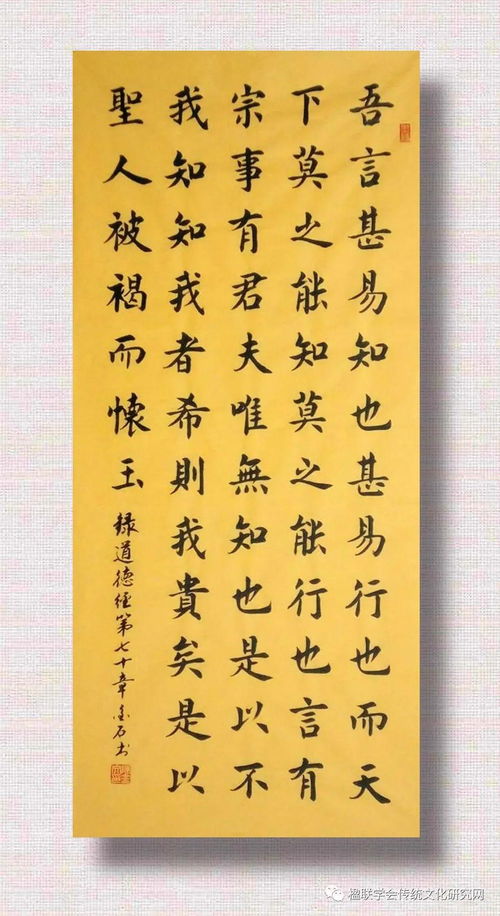 吾言甚易知也甚易行也而天
下莫之能知莫之能行也言有
宗事有君夫唯無知也是以不
我知知我者希則我貴矣是以
聖人被褐而懷玉
録道德經第七十章金石书
楹联学会传统文化研究网